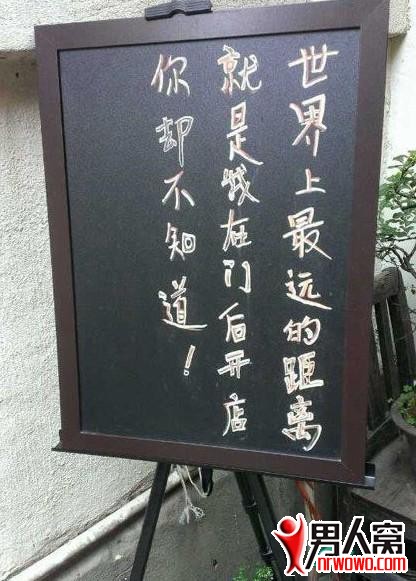 世界上最远的距离
就是我在门后开店
你却不知道！
男人窝
nrwowo.com